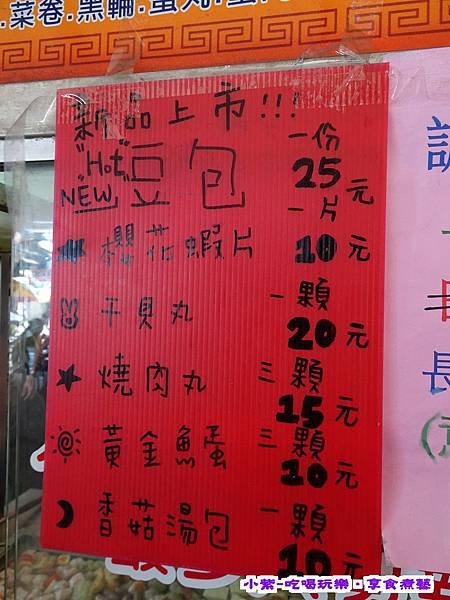 .菜卷.黑輪.蛋丸.
新品上市!!!
"Hot" NEW 豆包 一份 25元
櫻花蝦片 一片 10元
干貝丸 一顆 20元
燒肉丸 三顆 15元
黃金魚蛋 三顆 10元
香菇湯包 一顆 10元
長
小紫-吃喝玩樂‧享食煮藝